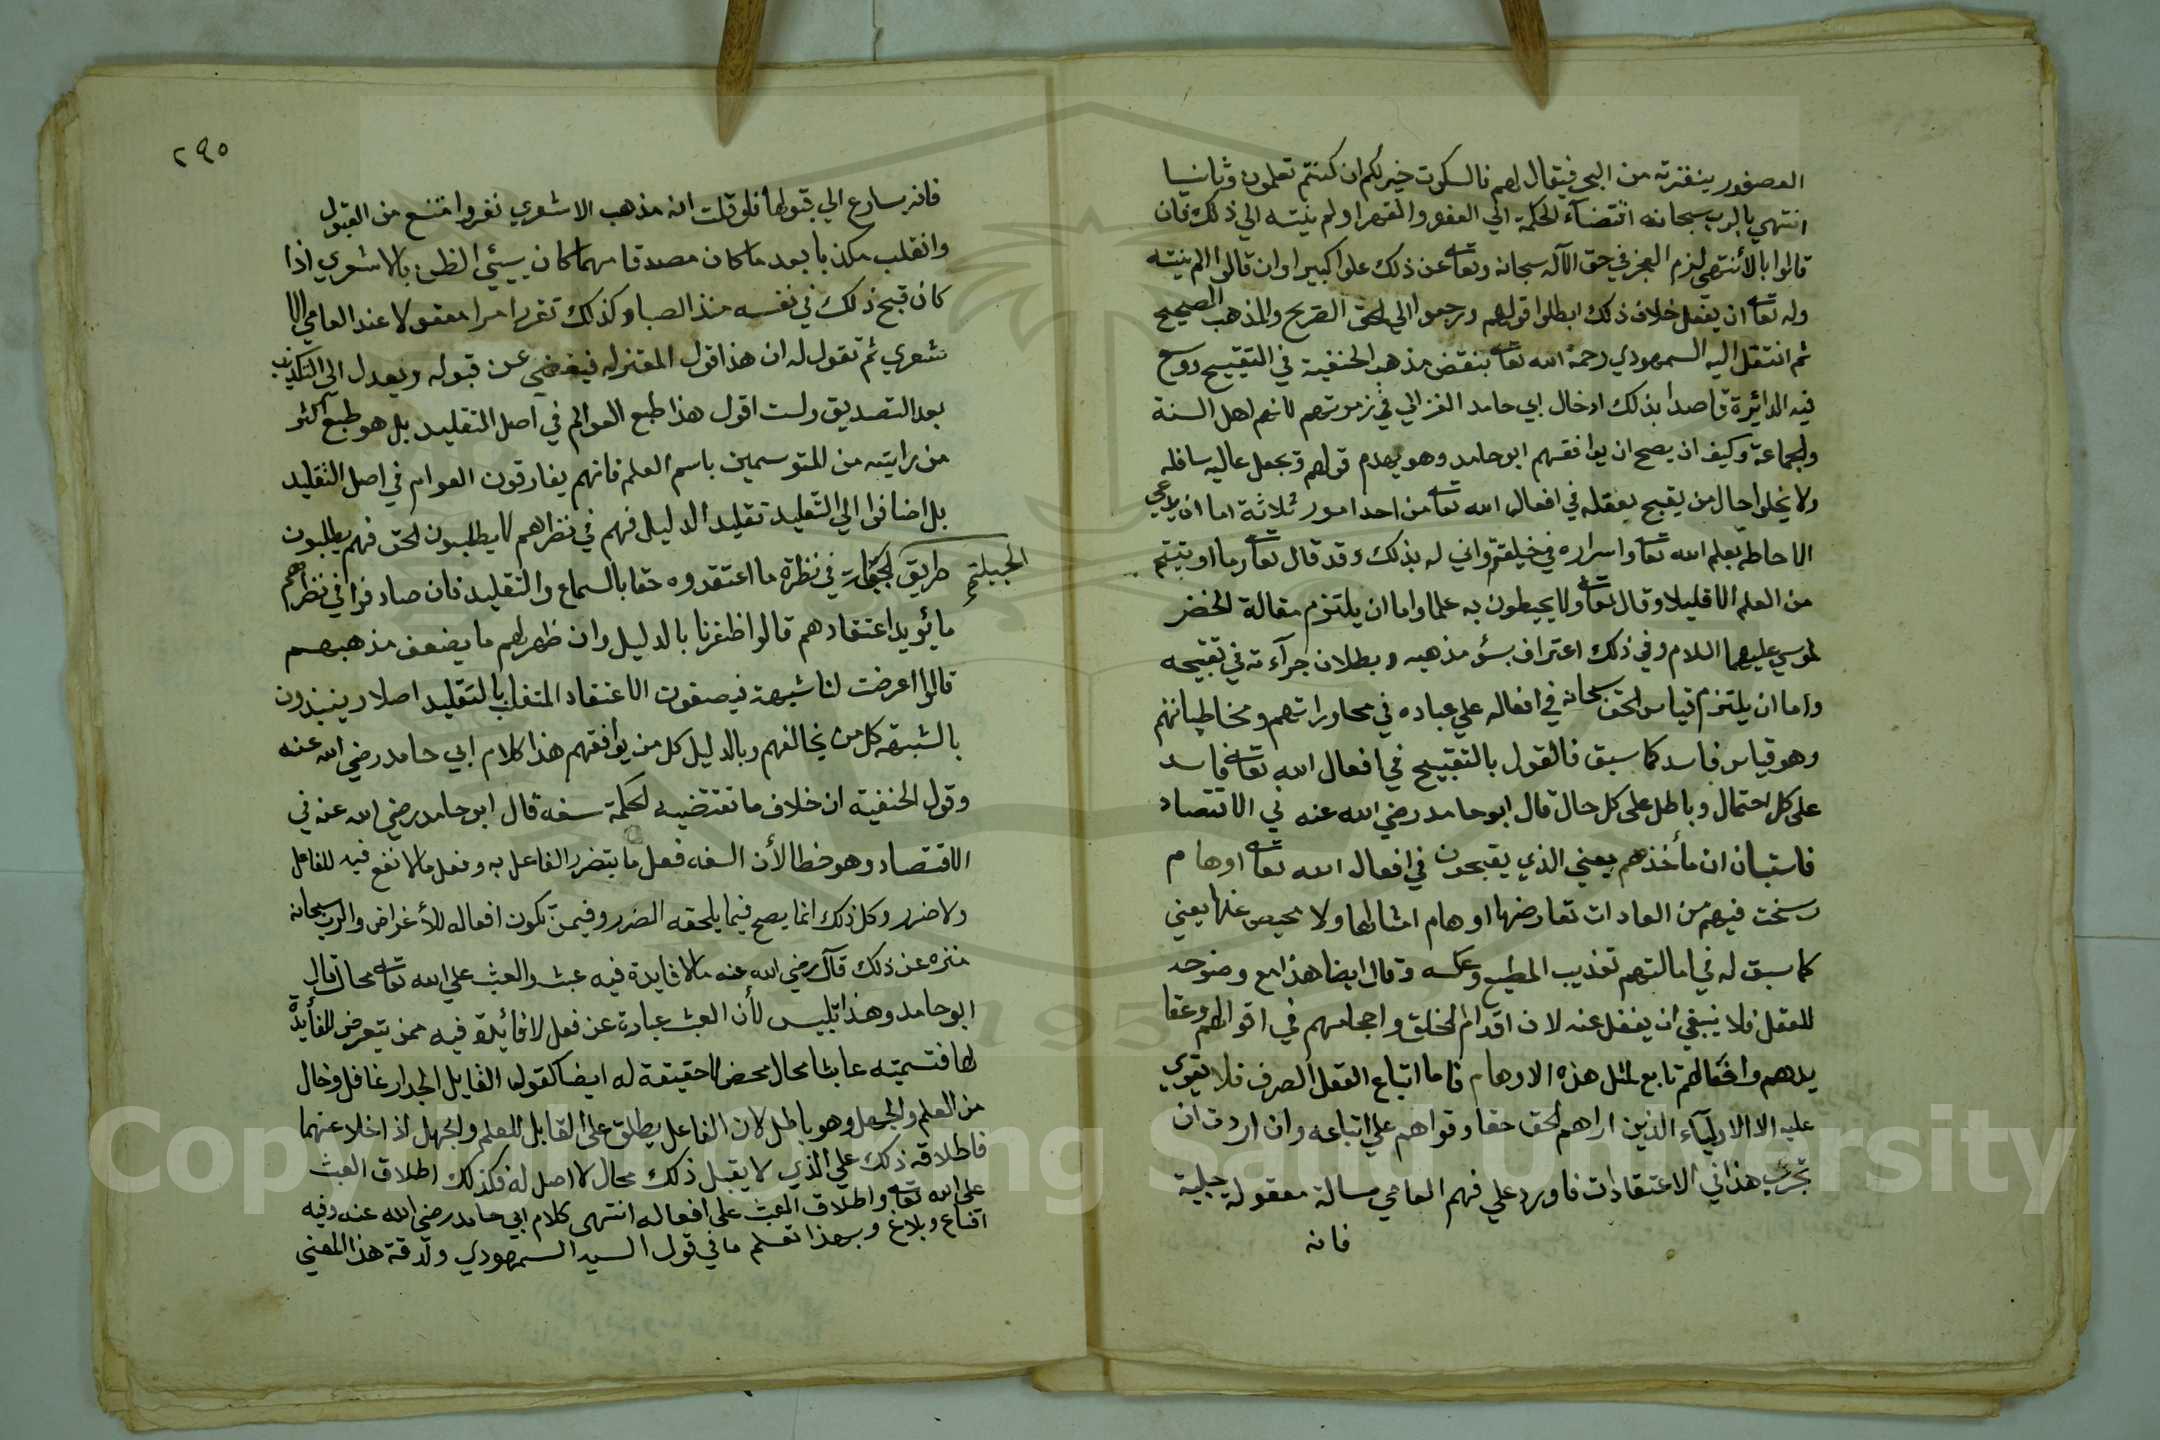 العصفور بنقرته من البحر فيقال لهم فالسكوت خير لكم ان كنتم تعلمون وثانيا
انتهي بالرب سبحانه اقتضآء الحكمة الي العفو والقهر او لم ينته الي ذلك فان
قالوا بالأنتهي لزم العجز في حق الآله سبحانه وتعا عن ذلك علوا كبيرا وان قالوا لم ينته
وله تعا ان يفعل خلاف ذلك ابطلوا قولهم ورجعوا الي الحق الصريح والمذهب الصحيح
ثم انتقل اليه السمهودي رحمه الله تعا بنقض مذهب الحنفية في التقبيح ووسع
فيه الدائرة قاصدا بذلك ادخال ابي حامد الغزالي في زمرتهم لانهم اهل السنة
والجماعة وكيف ان يصح ان يوافقهم ابو حامد وهو يهدم قولهم ويجعل عاليه سافله
ولا يخلوا حال من يقبح بعقله في افعال الله تعا من احد امور ثلاثة اما ان يدعي
الاحاطة بعلم الله تعا واسراره في خليقته واني له بذلك وقد قال تعا وما اوتيتم
من العلم الا قليلا وقال تعا ولا يحيطون به علما واما ان يلتزم مقالة الخضر
لموسي عليهما السلام وفي ذلك اعتراف بسؤ مذهبه وبطلان جرآءته في تقبيحه
واما ان يلتزم قياس الحق سبحانه في افعاله علي عباده في محاوراتهم ومخاطباتهم
وهو قياس فاسد كما سبق فالقول بالتقبيح في افعال الله تعا فاسد
على كل احتمال وباطل على كل حال قال ابو حامد رضي الله عنه في الاقتصاد
فاستبان ان مأخذهم يعني الذي يقبحون في افعال الله تعا اوهام
رسخت فيهم من العادات تعارضها اوهام امثالها ولا محيص عنها يعني
كما سبق له في امالتهم تعذيب المطيع وعكسه وقال ايضا هذا مع وضوحه
للعقل فلا ينبغي ان يغفل عنه لان اقدام الخلق واحجامهم في اقوالهم وعقا
يدهم وافعالهم تابع لمثل هذه الاوهام فاما اتباع العقل الصرف فلا يقوي
عليه الا الاوليآء الذين اراهم الحق حقا وقواهم علي اتباعه وان اردت ان
تجرب هذا في الاعتقادات فاورد علي فهم العامي مسالة معقولة جبلية
فانه
٢٩٥
فانه يسارع الي قبولها فلو قلت انه مذهب الاشعري نفر وامتنع من القبول
وانقلب مكذبا بعد ما كان مصدقا مهما كان سيئي الظن بالاشعري اذا
كان قبح ذلك في نفسه منذ الصبا وكذلك تقرر امرا معقولا عند العامي الا
شعري ثم تقول له ان هذا قول المعتزله فيغضي عن قبوله ويعدل الى التكذيب
بعد التصديق ولست اقول هذا طبع العوالم في اصل التقليد بل هو طبع اكثر
من رايته من المتوسمين باسم العلم فانهم يفارقون العوام في اصل التقليد
بل اضافوا الي التقليد تقليد الدليل فهم في نظرهم لا يطلبون الحق فهم يطلبون
طريق الحيلة في نظرة ما اعتقدوه حقا بالسماع والتقليد فان صادفوا في نظرهم
ما يؤيد اعتقادهم قالوا ظفرنا بالدليل وان ظهر لهم ما يضعف مذهبهم
قالوا اعرضت لنا شبهة فيصفون الاعتقاد المتقلب بالتقليد اصلا وينبذون
بالشبهة كل من يخالفهم وبالدليل كل من يوافقهم هذا كلام ابي حامد رضي الله عنه
وقول الحنفية ان خلاف ما تقتضيه الحكمة سفه قال ابو حامد رضي الله عنه في
الاقتصاد وهو خطا لأن السفه فعل ما يتضرر الفاعل به وفعل مالا نفع فيه للفاعل
ولا ضرر وكل ذلك انما يصح فيما يلحقه الضرر وفيمن تكون افعاله للأغراض والرب سبحانه
منزه عن ذلك قال رضي الله عنه مالا فايدة فيه عبث والعبث علي الله تعا محال قال
ابو حامد وهذا تلبيس لأن العبث عبارة عن فعل لا فائدة فيه ممن يتعرض للفأيدة
لها فتسميته عابثا محال محض لا حقيقة له ايضا كقول القايل الجدار غافل وخال
من العلم والجهل وهو باطل لان الغافل يطلق على القابل للعلم والجهل اذ اخلا عنهما
فاطلاقه ذلك علي الذي لا يقبل ذلك محال لا اصل له فكذلك اطلاق العبث
على الله تعا واطلاق العبث على افعاله انتهى كلام ابي حامد رضي الله عنه وفيه
اقناع وبلاغ وبهذا تعلم ما في قول السيد السمهودي ولدقة هذا المعني
Copyright © King Saud University